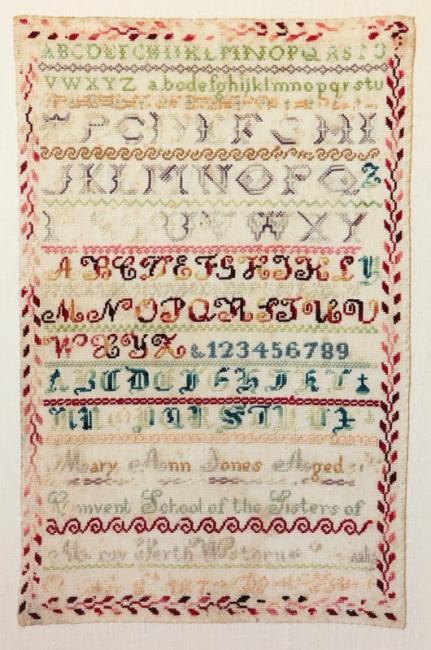 ABCDEFGHIJKLMNOPQRSTU
VWXYZ abcdefghijklmnopqrstu
F G H I
JKLMNOPQZ
UVWXY
ABCDEFGHIJKLY
MNOPQRSTUV
WXYZ &123456789
ABCDEFGHIKL
MNOPQRSTUX
Mary Ann Jones Aged
Convent School of the Sisters of
Mercy Perth Western
187